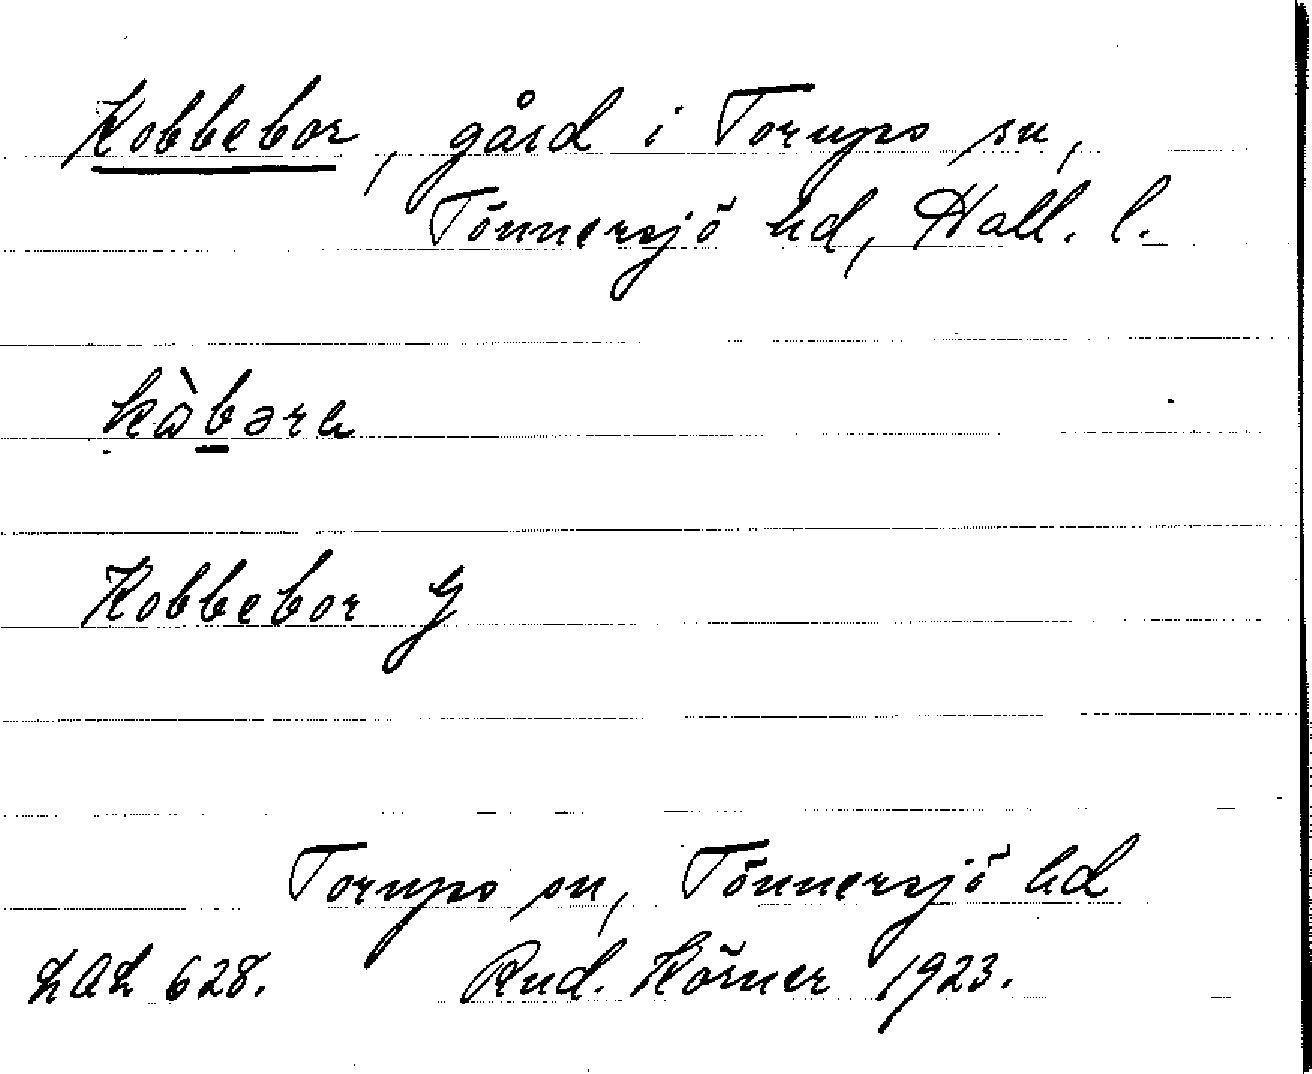 Kobbebor, gård i Torups sn,
Tönnersjö hd, Hall. l.
Kobbebor G
Torups sn, Tönnersjö hd
LAL 628. Rud. Körner 1923.